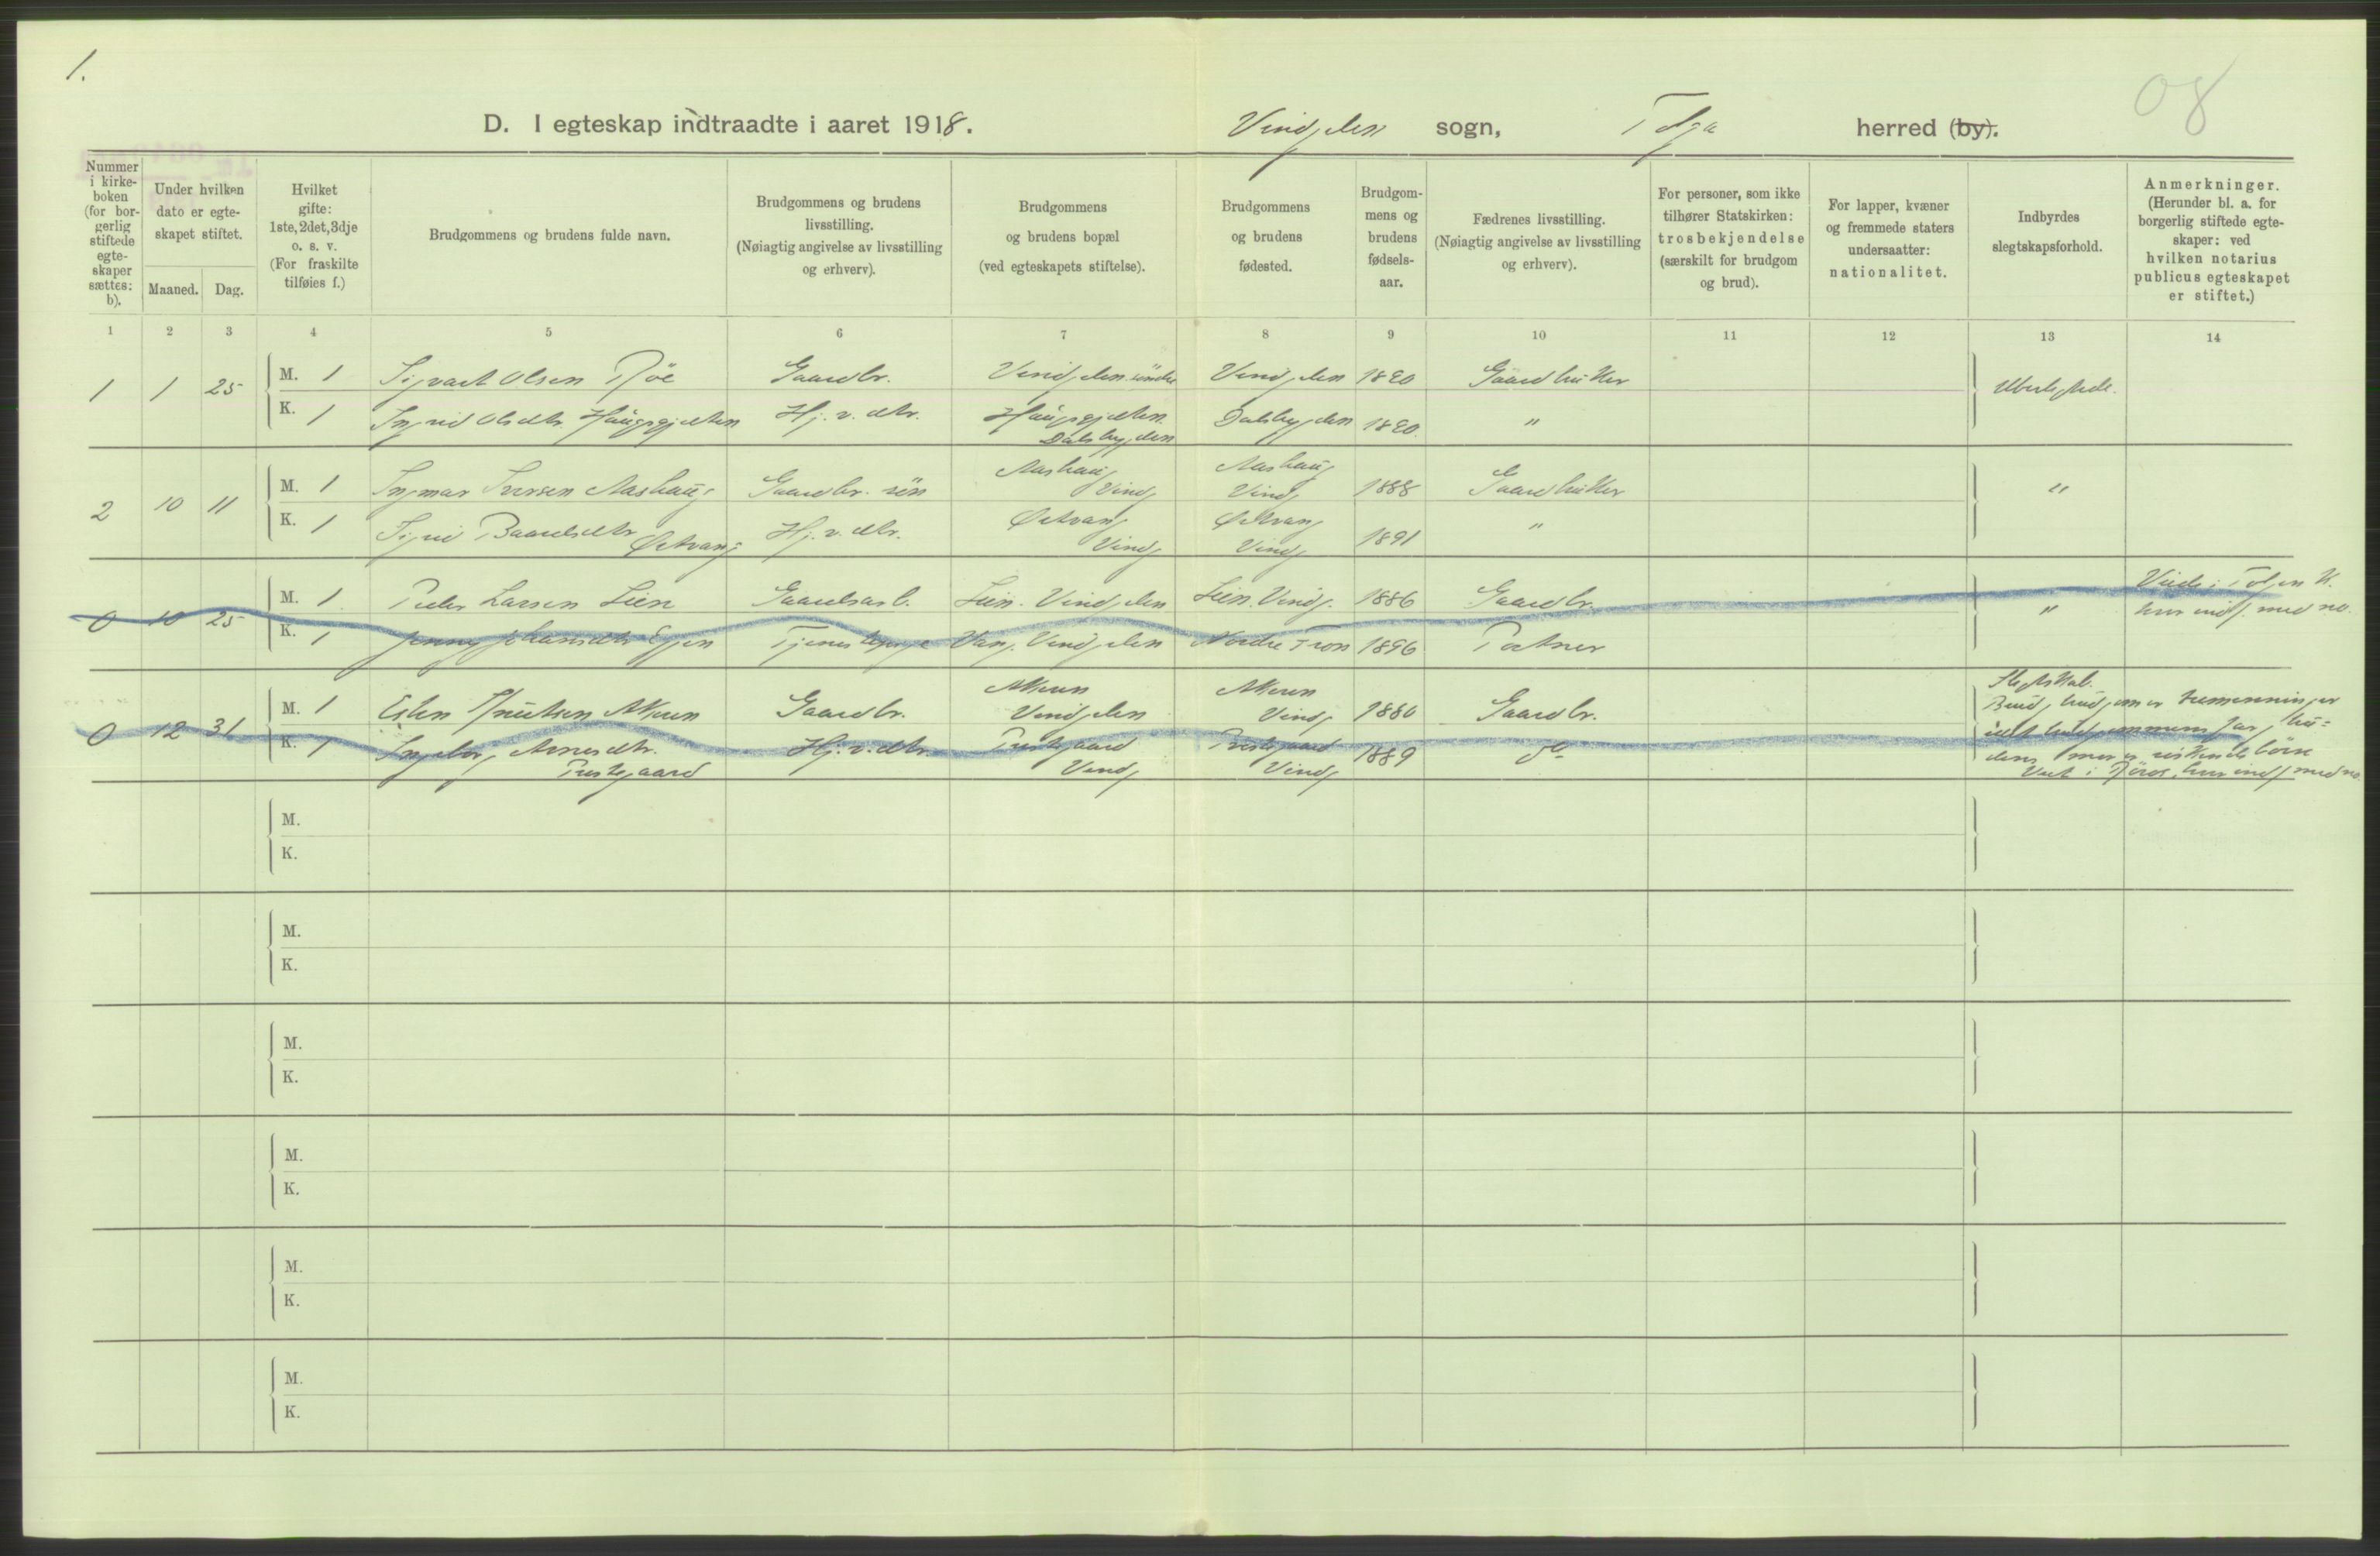 1.
08
D. I egteskap indtraadte i aaret 1918. Vingelen sogn, Tolga herred (by).
Nummer i kirke- boken (for bor- gerlig stiftede egte- skaper sættes: b).
Under hvilken dato er egte- skapet stiftet.
Maaned. Dag.
Hvilket gifte: 1ste, 2det, 3dje o. s. v. (For fraskilte tilføies f.)
Brudgommens og brudens fulde navn.
Brudgommens og brudens livsstilling. (Nøiagtig angivelse av livsstilling og erhverv).
Brudgommens og brudens bopæl (ved egteskapets stiftelse).
Brudgommens og brudens fødested.
Brudgom- mens og brudens fødsels- aar.
Fædrenes livsstilling. (Nøiagtig angivelse av livsstilling og erhverv).
For personer, som ikke tilhører Statskirken: trosbekjendelse (særskilt for brudgom og brud).
For lapper, kvæner og fremmede staters undersaatter: nationalitet.
Indbyrdes slegtskapsforhold.
Anmerkninger. (Herunder bl. a. for borgerlig stiftede egte- skaper: ved hvilken notarius publicus egteskapet er stiftet.)
1 2 3 4 5 6 7 8 9 10 11 12 13 14
1 1 25 M. 1 Sigvart Olsen Røe Gaardbr. Vingelen søndre Vingelen 1890 Gaardbruker Ubeslegtede.
K. 1 Ingrid Olsdtr. Haugsgjelten Hj. v. dtr. Haugsgjelten Dalsbygden Dalsbygden 1890 "
2 10 11 M. 1 Ingmar Iversen Aashaug Gaardbr. søn Aashaug Ving. Aashaug Ving. 1888 Gaardbruker "
K. 1 Sigrid Baardsdtr. Østvang Hj. v. dtr. Østvang Ving. Østvang Ving. 1891 "
0 10 25 M. 1 Peder Larsen Lien Gaardsarb. Lien. Vingelen Lien. Ving. 1886 Gaardbr. " Viede i Tolgen K. her indf. med no.
K. 1 Jenny Johansdtr. Eggen Tjenestepige Vang. Vingelen Nordre Fron 1896
0 12 31 M. 1 Esten Knutsen Akeren Gaardbr. Akeren Vingelen Akeren Ving. 1880 Gaardbr. Slegtskab. Brud, brudgom er tremenninger
K. 1 Ingeborg Arnesdtr. Prestegaard Hj. v. dtr. Prestegaard Ving. Prestegaard Ving. 1889 do brudgommens far, bru= dens mor er søskende børn
Viet i Røros, her indf. med no.
M.
K.
M.
K.
M.
K.
M.
K.
M.
K.
M.
K.